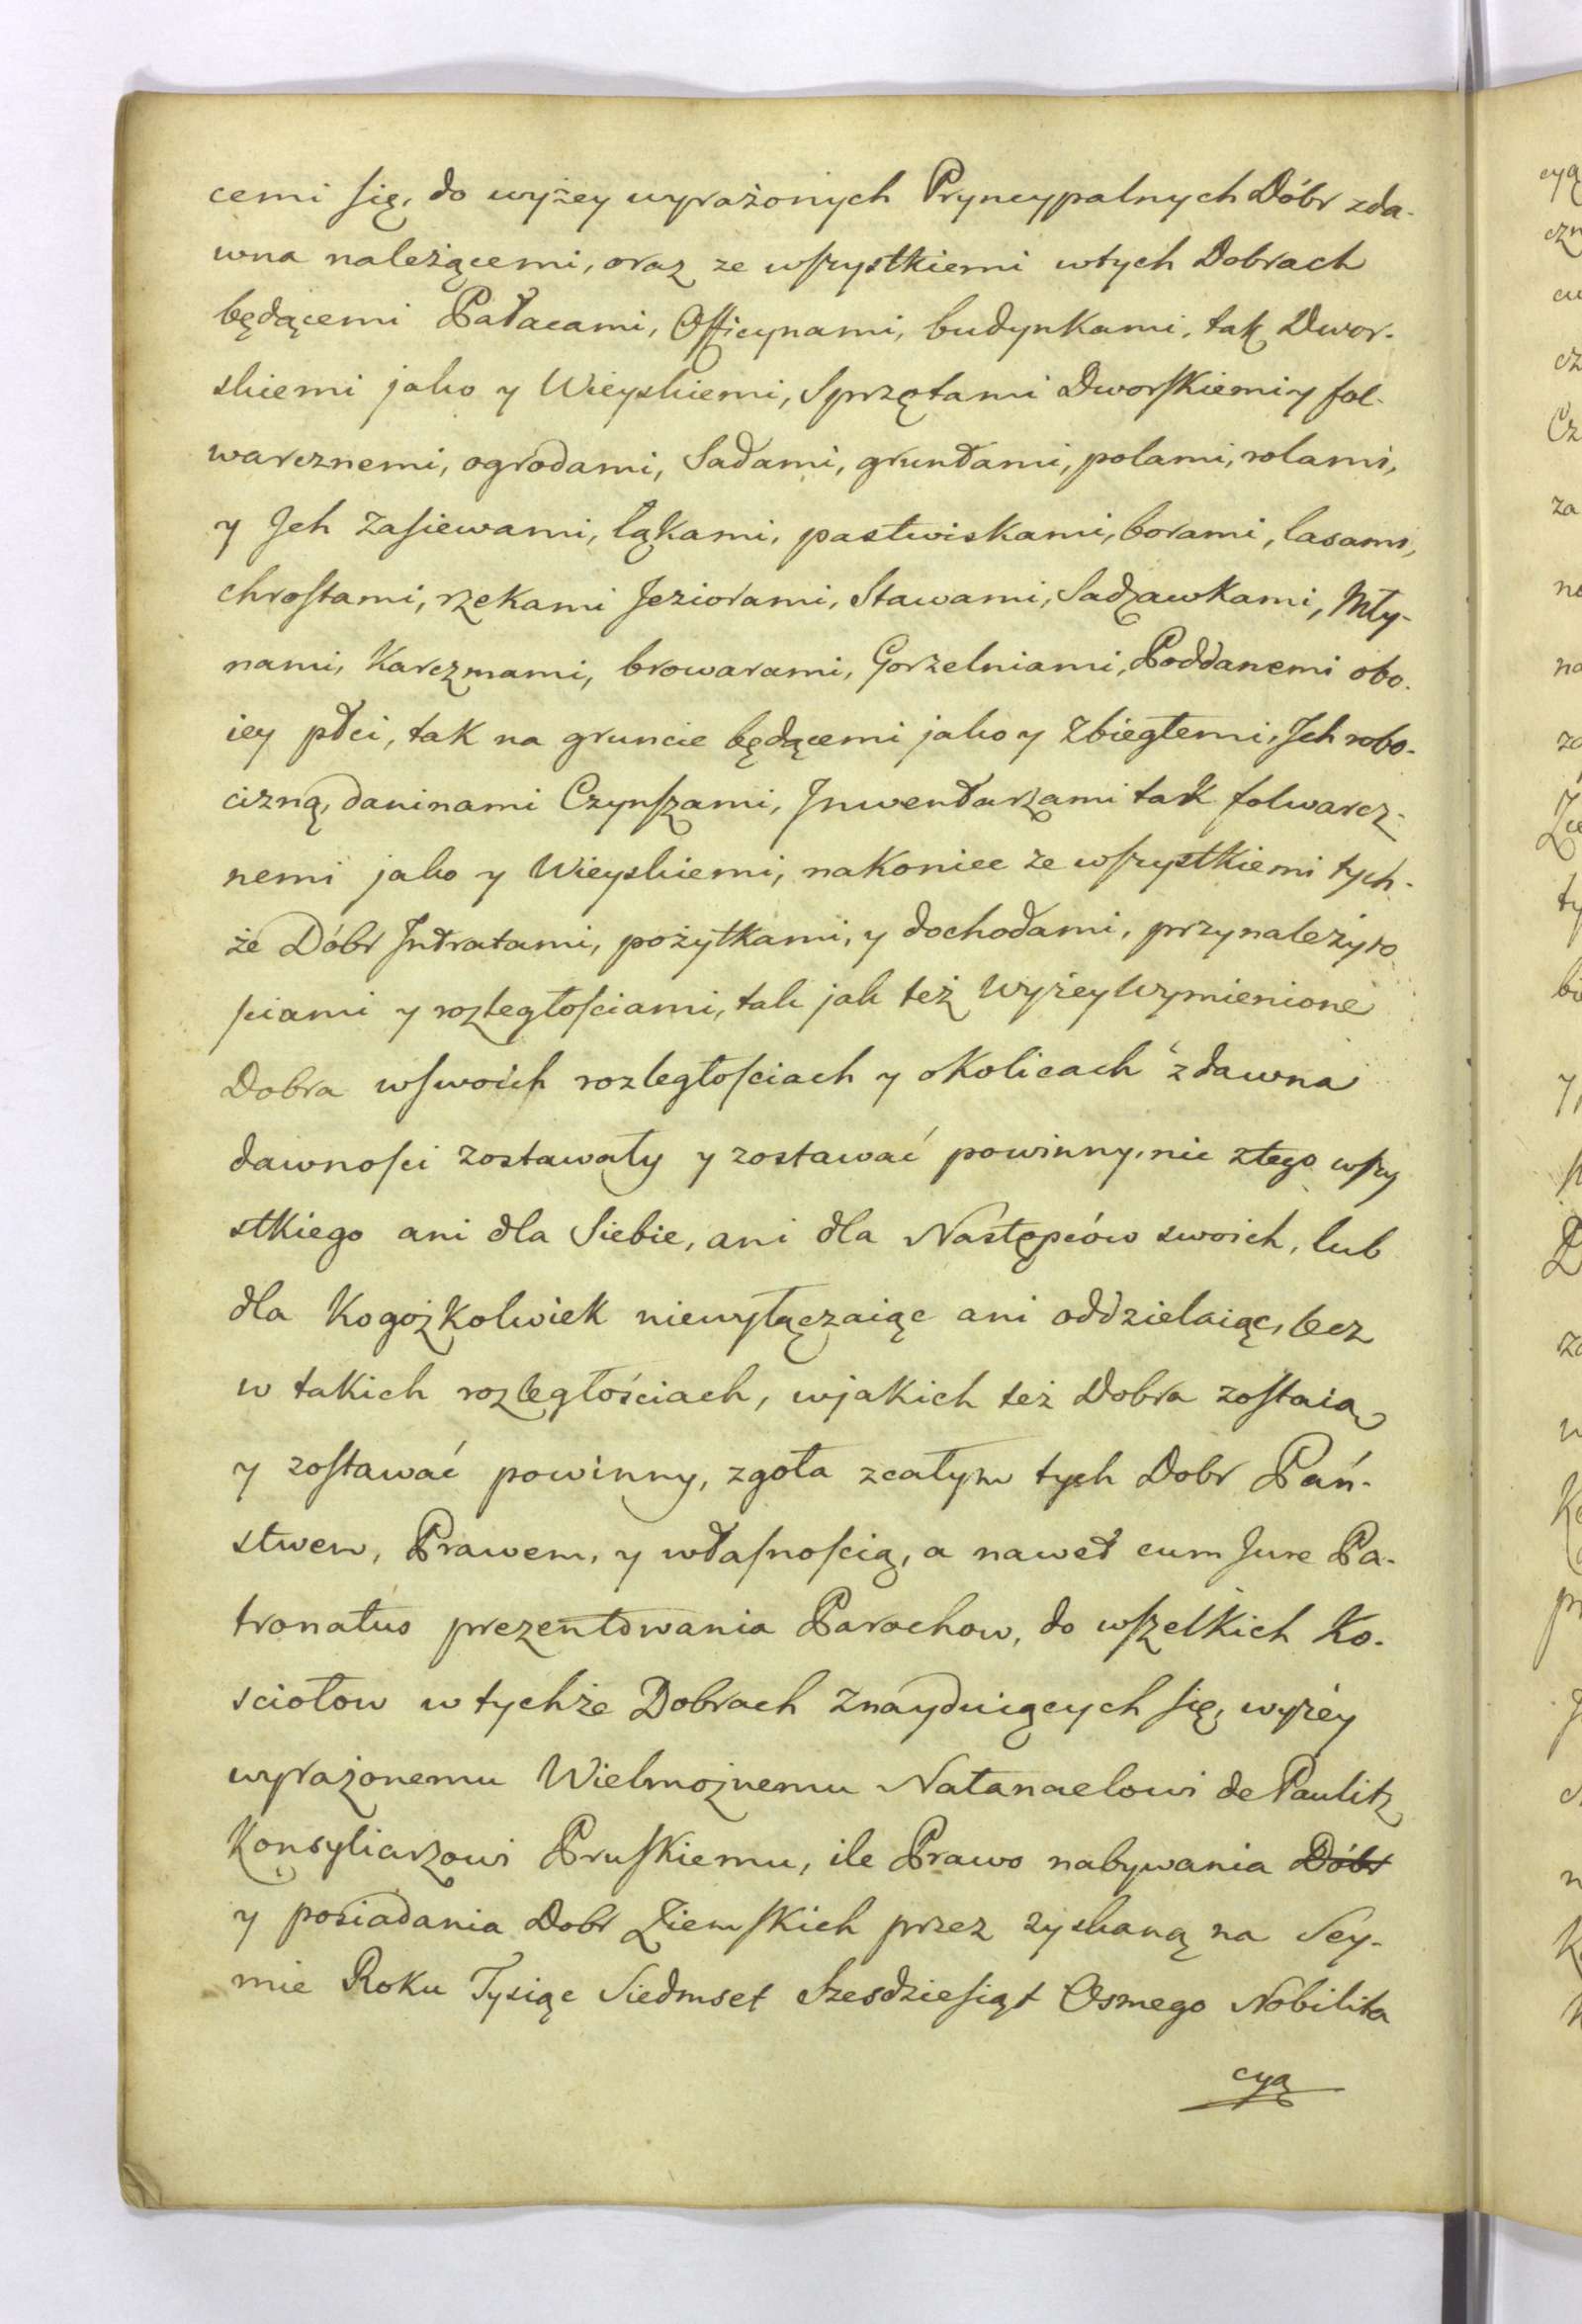 cemi się, do wyżey wyrażonych Pryncypalnych Dóbr zda-
wna należącemi, oraz ze wszystkiemi wtych Dobrach
będącemi Pałacami, Officynami, budynkami, tak Dwor-
skiemi jako y Wieyskiemi, Sprzętami Dworskiemi y fol-
warcznemi, ogrodami, Sadami, gruntami, polami, rolami,
y Jch zasiewami, łąkami, pastwiskami, borami, lasami,
chrostami, rzekami Jeziorami, Stawami, Sadzawkami, Mły-
nami, Karczmami, browarami, Gorzelniami, Poddanemi obo-
iey płci, tak na gruncie będącemi jako y Zbiegłemi, Jch robo-
cizną, daninami Czynszami, Jnwentarzami tak folwarcz-
nemi jako y Wieyskiemi, nakoniec ze wszystkiemi tych-
że Dóbr Jntratami, pożytkami, y dochodami, przynależyto
sciami y rozległościami, tak jak też wyżey wymienione
Dobra wswoich rozległościach y okolicach zdawna
dawności zostawały y zostawać powinny, nic ztego wszy
stkiego ani dla Siebie, ani dla Następców swoich, lub
dla Kogożkolwiek niewyłączaiąc ani oddzielaiąc, lecz
w takich rozległościach, wjakich też Dobra zostaią
y zostawać powinny, zgoła zcałym tych Dobr Pań-
stwem, Prawem, y własnością, a nawet cum Jure Pa-
tronatus prezentowania Parochow, do wszelkich Ko-
sciołow w tychże Dobrach znayduiących się, wyżey
wyrażonemu Wielmożnemu Natanaelowi de Paulitz
Konsyliarzowi Pruskiemu, ile Prawo nabywania Dóbr
y posiadania Dobr Ziemskich przez zyskaną na Sey-
mie Roku Tysiąc Siedmset Szesdziesiąt Osmego Nobilita
cyą